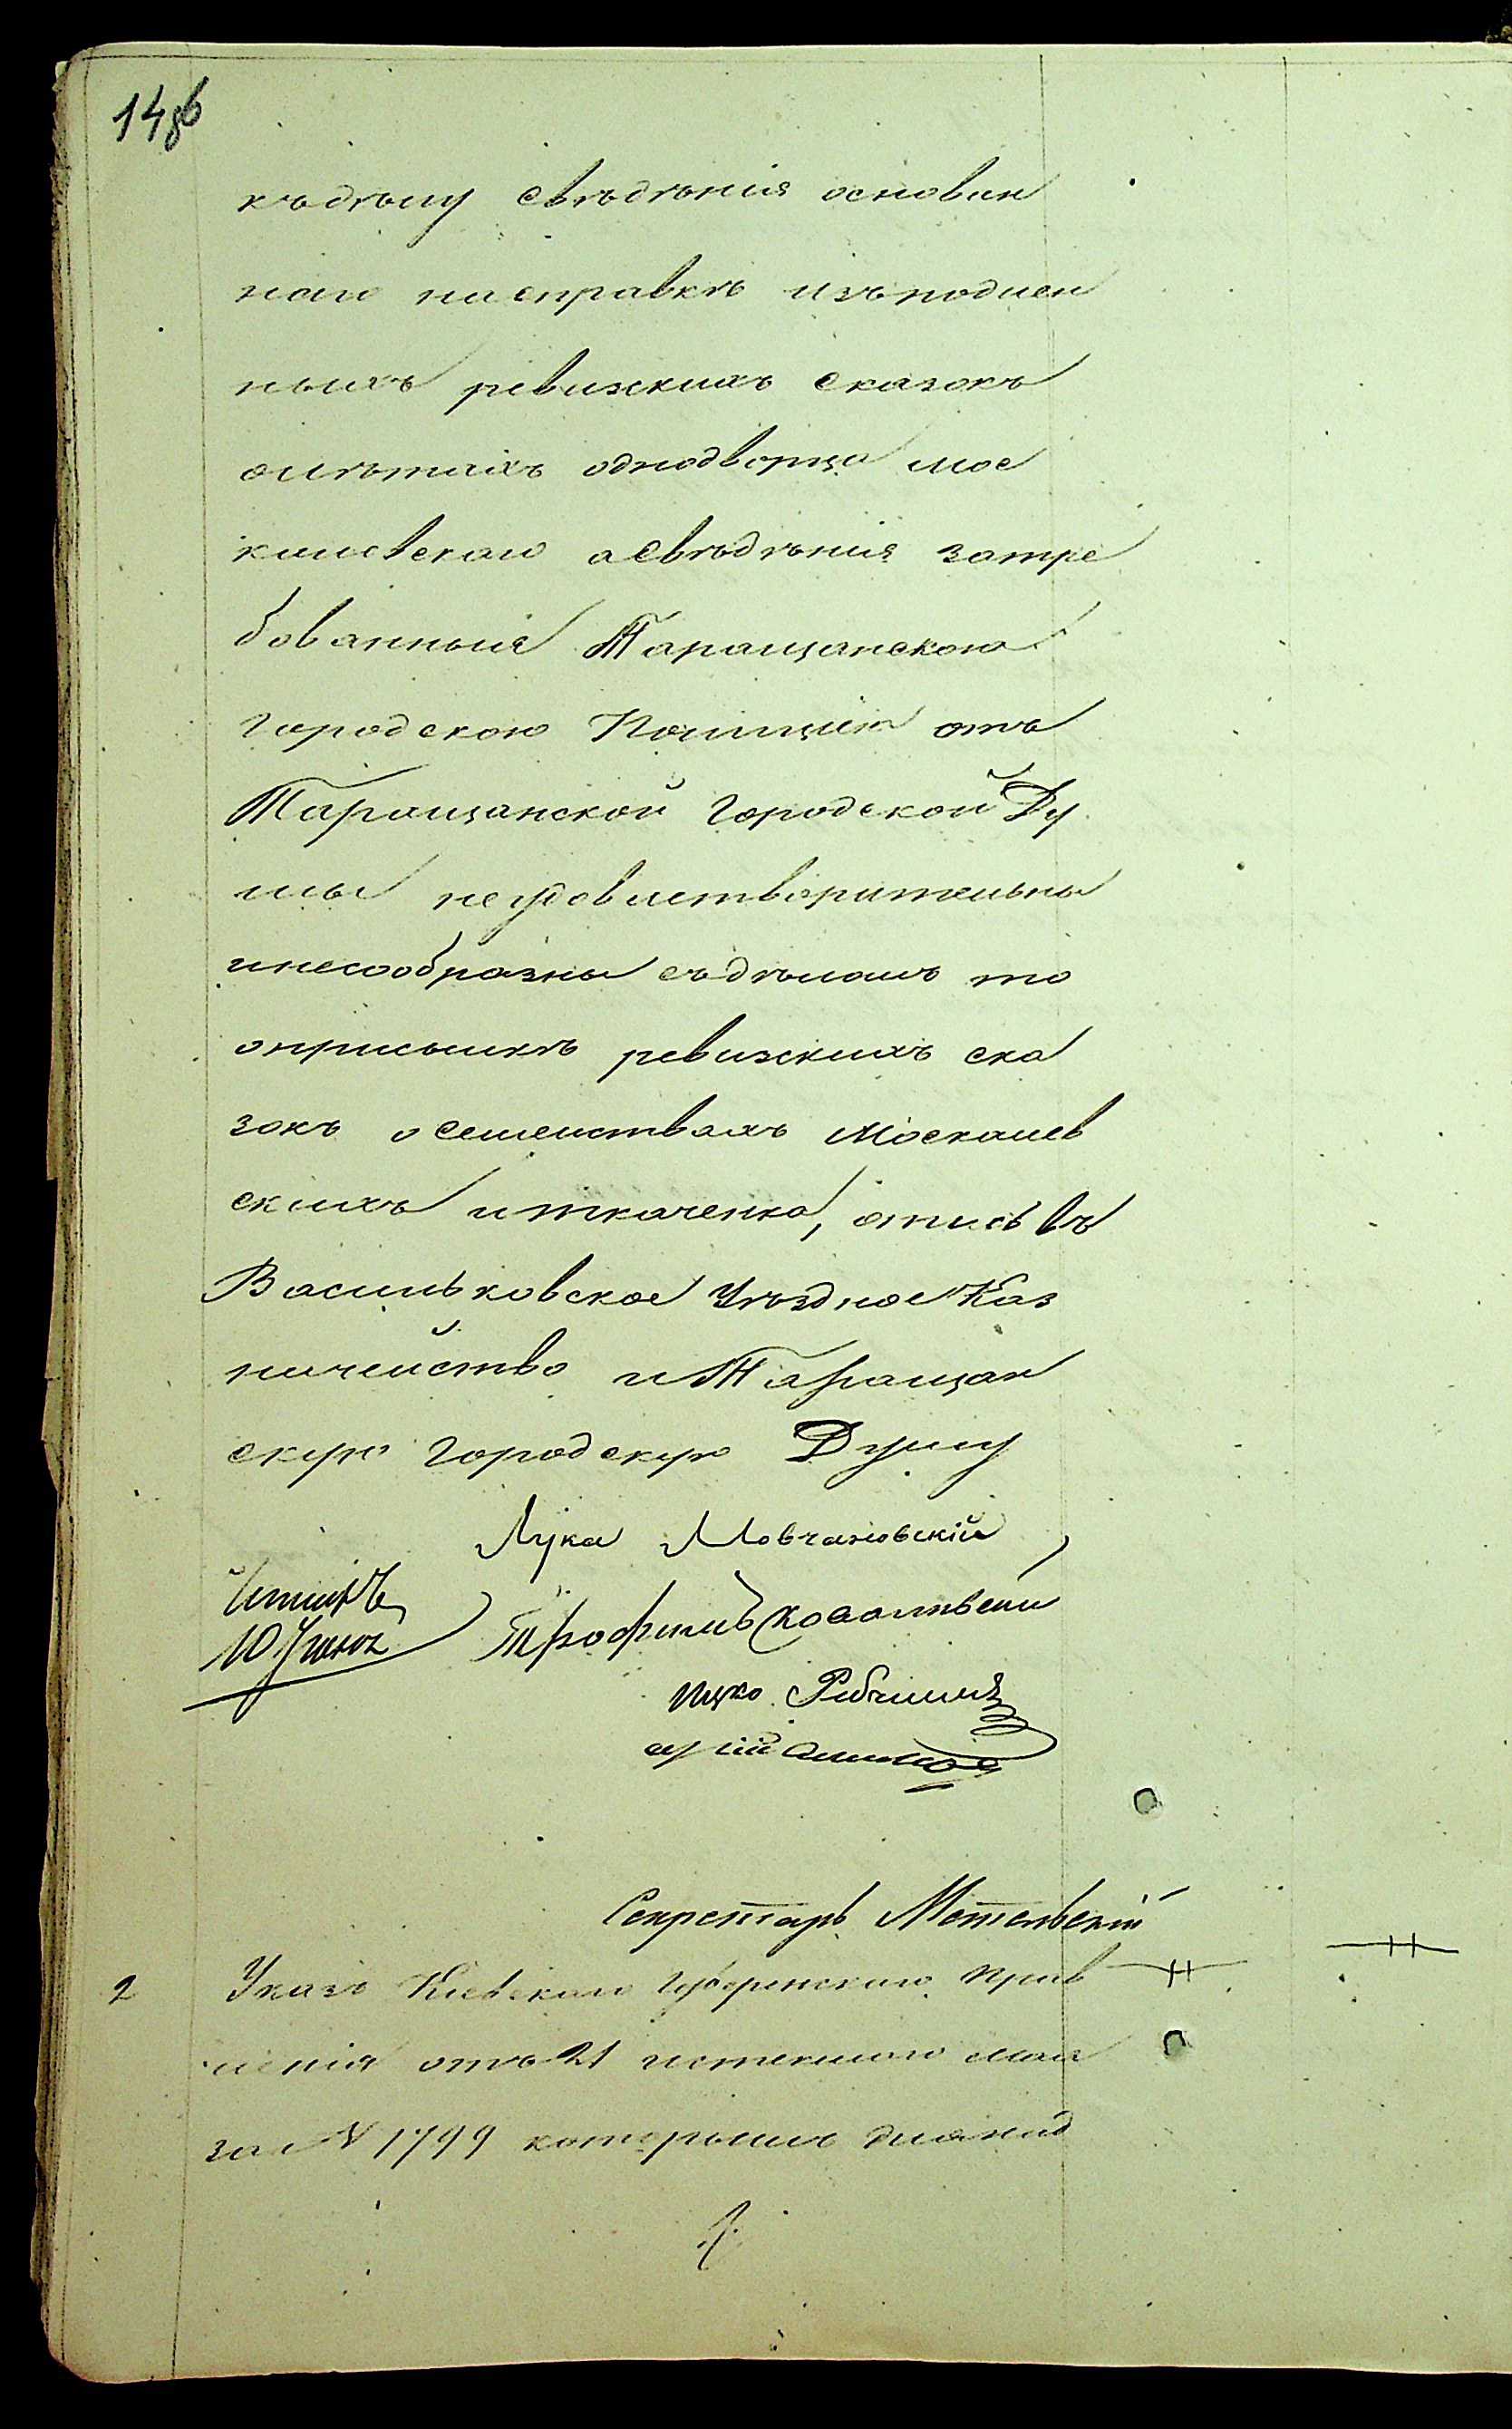 148б
къдѣлу свѣдѣнія основан
наго насправкѣ изъподлен
ныхъ ревизскихъ сказокъ
олѣтахъ однодворца Мос
калевскаго асвѣдѣнія затре
бованныя Таращанскою
городскою Полиціею отъ
Таращанской городской Ду
мы неудовлетворительны
инесообразны съдѣломъ то
оприсылкѣ ревизскихъ ска
зокъ осемействахъ Москалев
скихъ иткаченка, отнись въ
Васильковское Уѣздное Каз
начейство иТаращан
скую городскую Думу
Лука Мовчановскій
Трофимъ
Ицко
Секретарь Мотельскій
2 Указъ Кіевскаго Губернскаго Прав
ленія отъ 21 истекшаго мая
за № 1799 которымъ